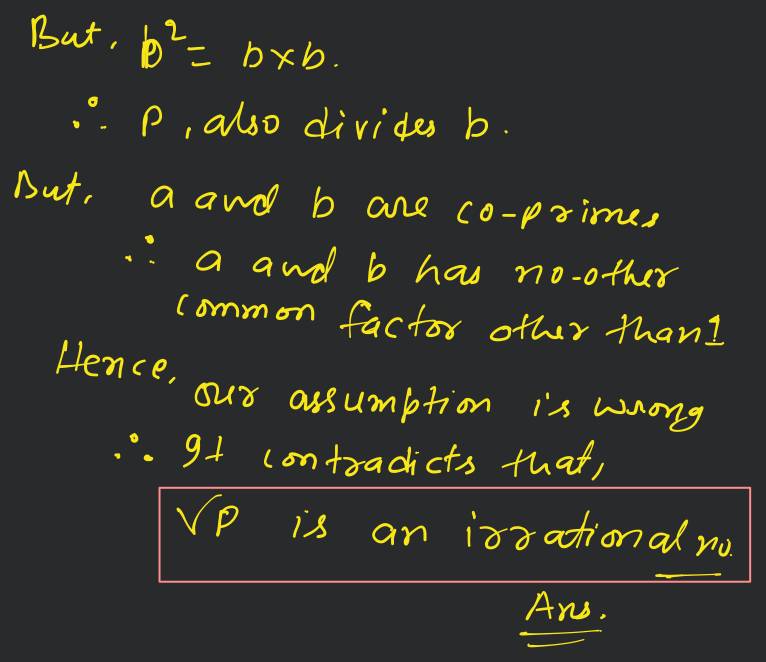 But, b² = b×b.
∴ P, also divides b.
But, a and b are co-primes
∴ a and b has no-other
common factor other than 1
Hence, our assumption is wrong
∴ It contradicts that,
√P is an irrational no.
Ans.